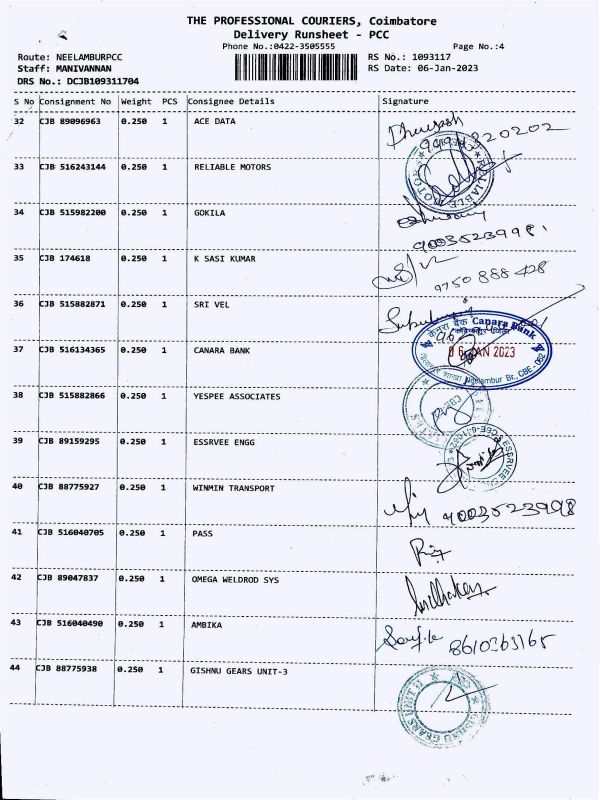 THE PROFESSIONAL COURIERS, Coimbatore
Delivery Runsheet - PCC
Phone No.:0422-3505555 Page No.:4
Route: NEELAMBURPCC RS No.: 1093117
Staff: MANIVANNAN RS Date: 06-Jan-2023
DRS No.: DCJB109311704
S No Consignment No Weight PCS Consignee Details Signature
32 CJB 89096963 0.250 1 ACE DATA
33 CJB 516243144 0.250 1 RELIABLE MOTORS
RELIABLE MOTORS
34 CJB 515982200 0.250 1 GOKILA
9003523998
35 CJB 174618 0.250 1 K SASI KUMAR
9750 888 428
36 CJB 515882871 0.250 1 SRI VEL
केनरा बैंक Canara Bank
37 CJB 516134365 0.250 1 CANARA BANK
06 JAN 2023
Neelambur Br., CBE - 062
38 CJB 515882866 0.250 1 YESPEE ASSOCIATES
39 CJB 89159295 0.250 1 ESSRVEE ENGG
ESSRVEE
40 CJB 88775927 0.250 1 WINMIN TRANSPORT
9003523998
41 CJB 516040705 0.250 1 PASS
42 CJB 89047837 0.250 1 OMEGA WELDROD SYS
43 CJB 516040490 0.250 1 AMBIKA
8610363165
44 CJB 88775938 0.250 1 GISHNU GEARS UNIT-3